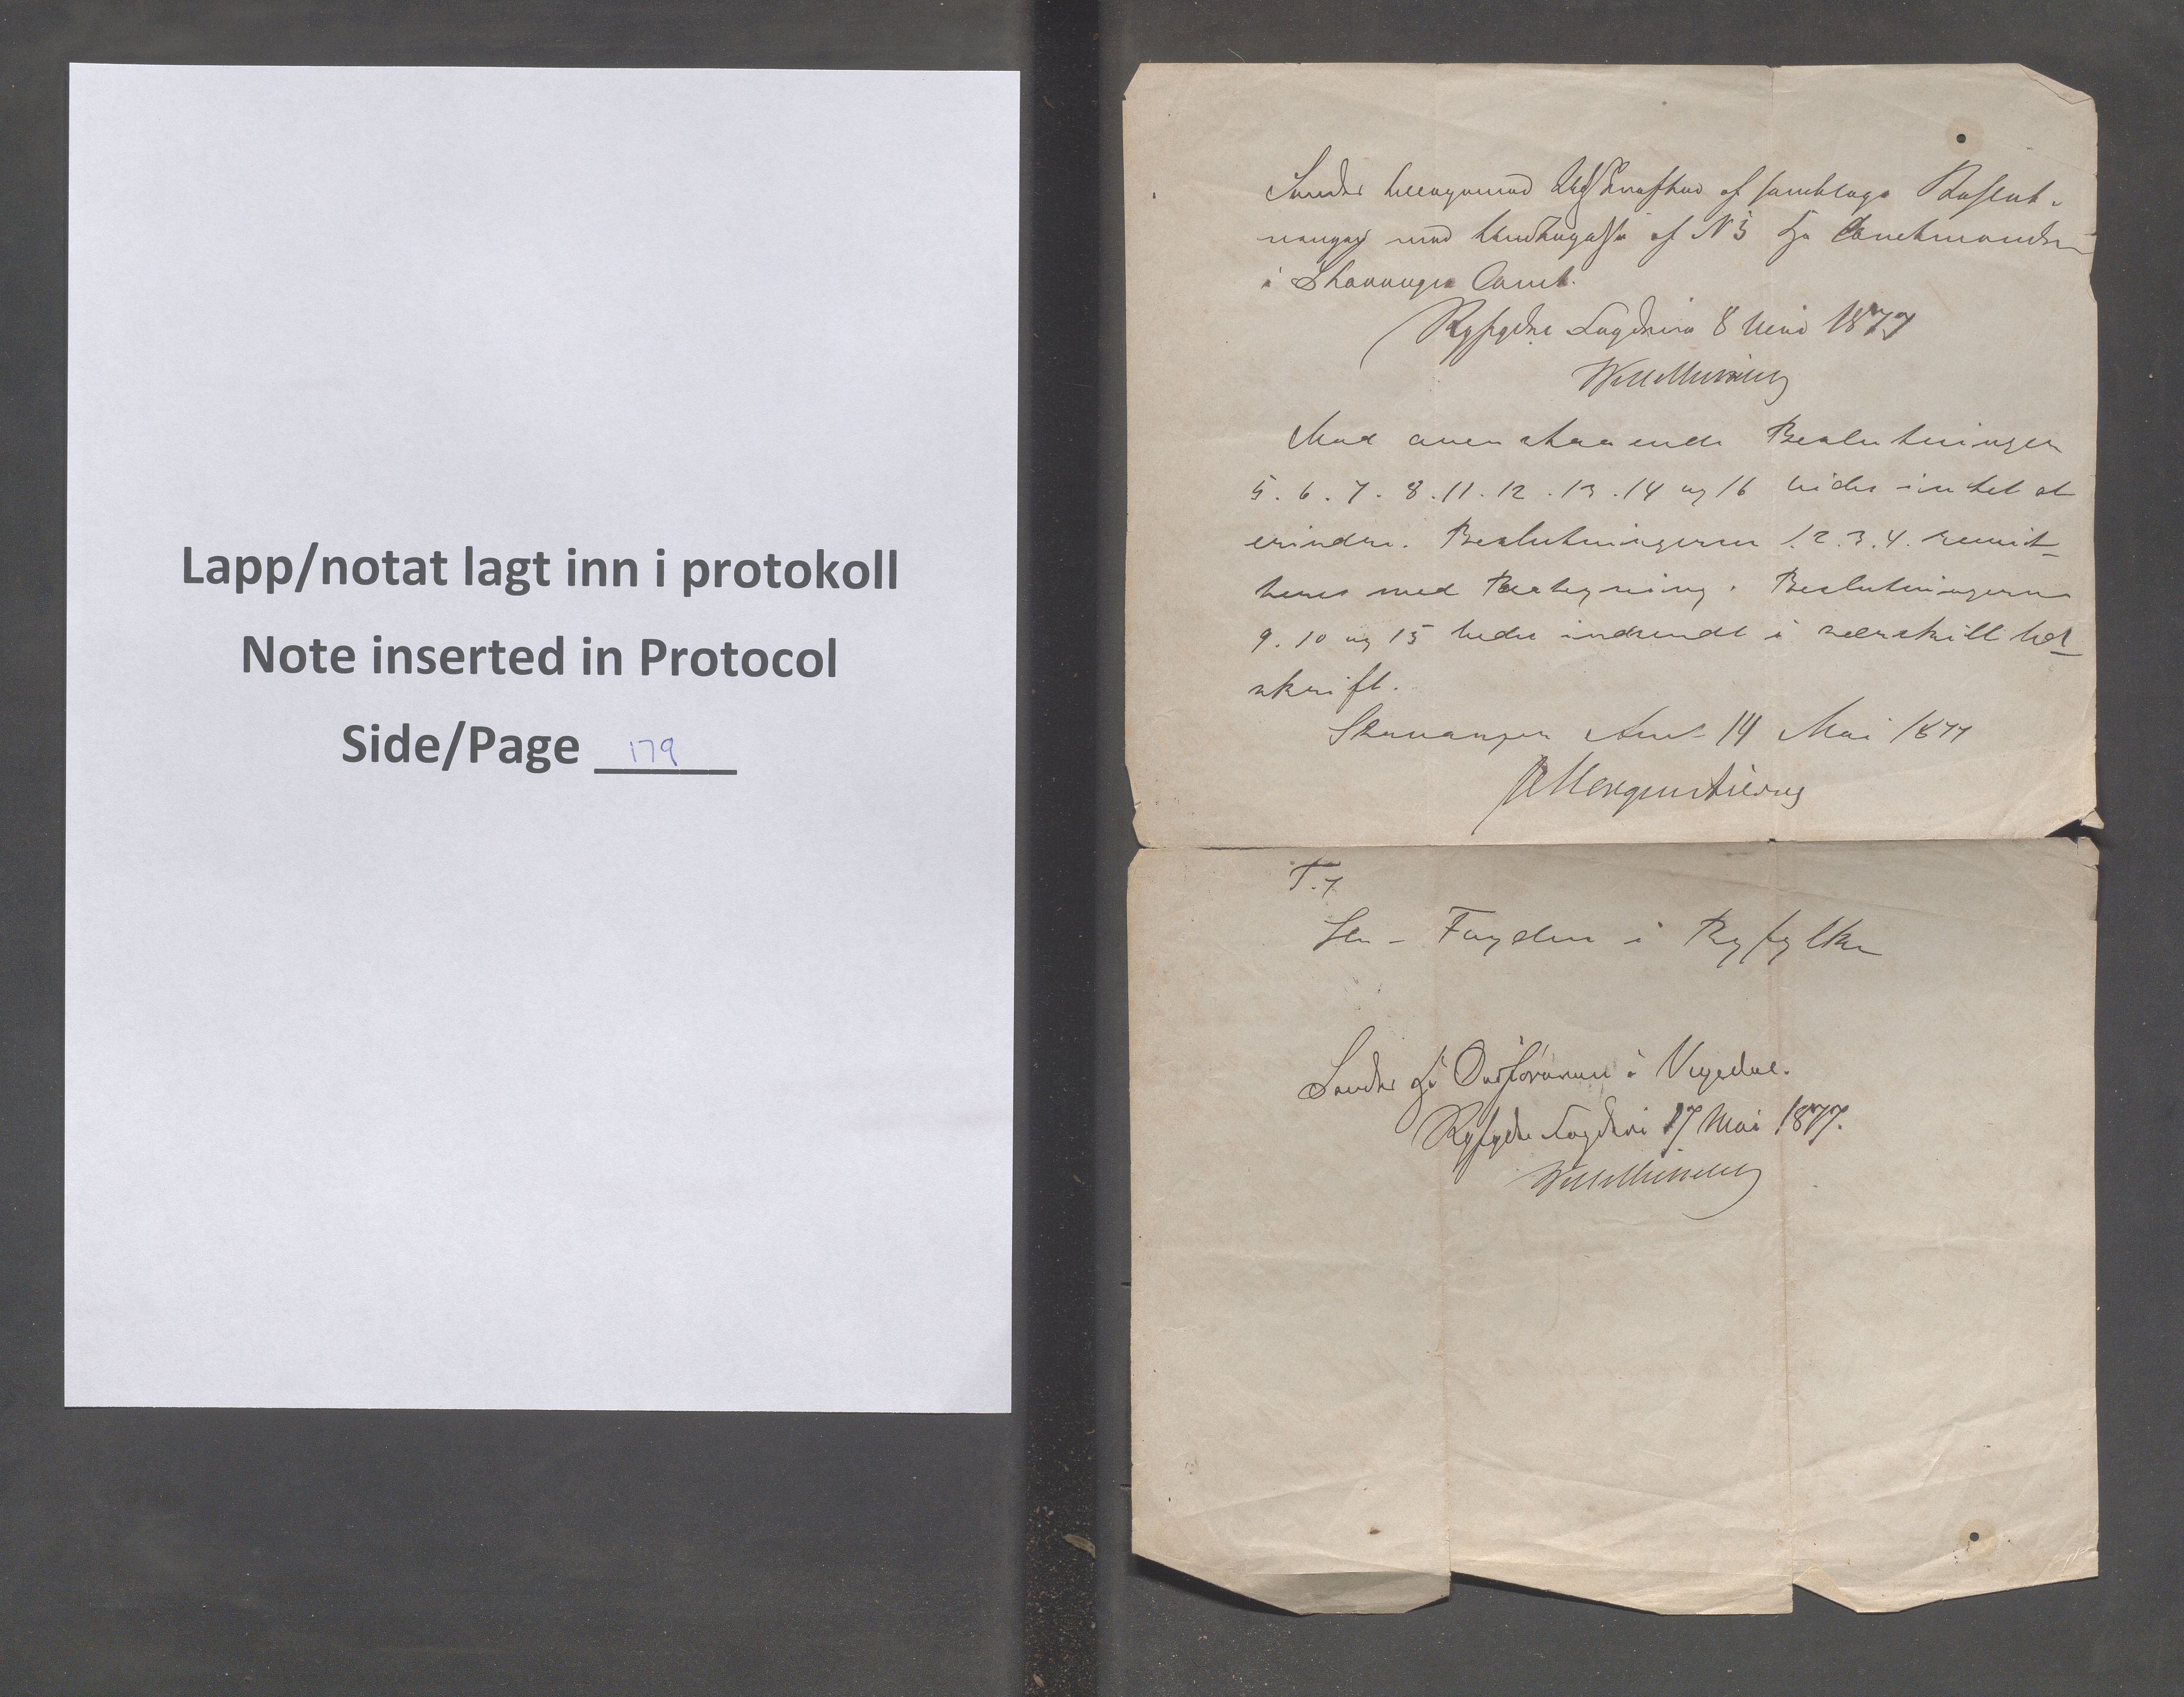 Lapp/notat lagt inn i protokoll
Note inserted in Protocol
Side/Page 179
Sendes hermed Udskrifter af samtlige Beslut-
ninger med Undtagelse af N 3 til Amtmanden
i Stavanger Amt.
Ryfylke Fogderi 8 Mai 1877
Mod ovenstaaende Beslutninger
5. 6. 7. 8. 11. 12. 13. 14 og 16 vides intet at
erindre. Beslutningerne 1. 2. 3. 4. remit-
teres med Paategning. Beslutningerne
9. 10 og 15 bedes indsendt i særskilt Ud-
skrift.
Stavanger Amt 14 Mai 1877
Morgenstierne
T.
Hr. Fogden i Ryfylke
Sendes til Ordføreren i Vigedal.
Ryfylke Fogderi 17 Mai 1877.